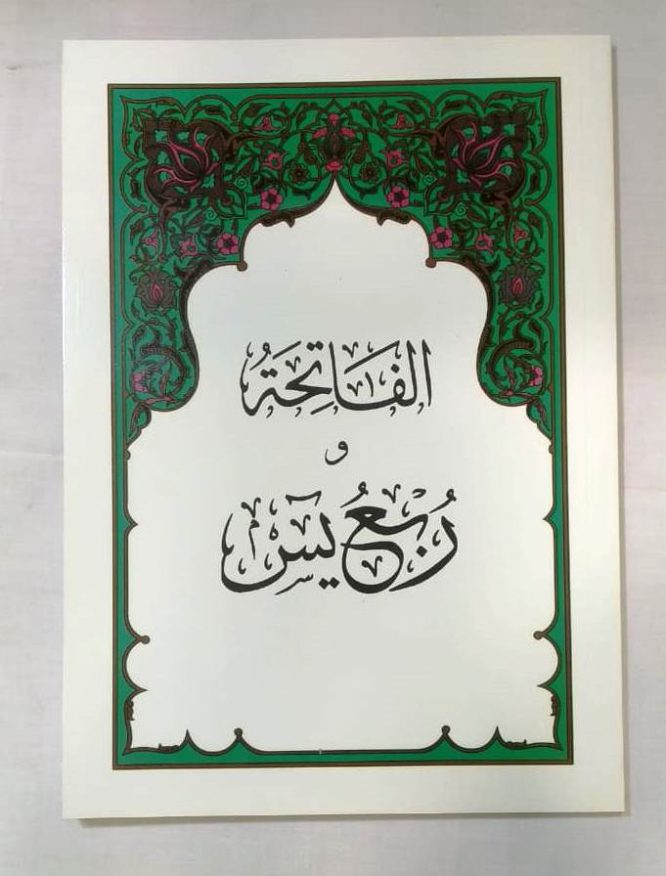 الفَاتِحَةُ
و
رُبْعُ يٓس